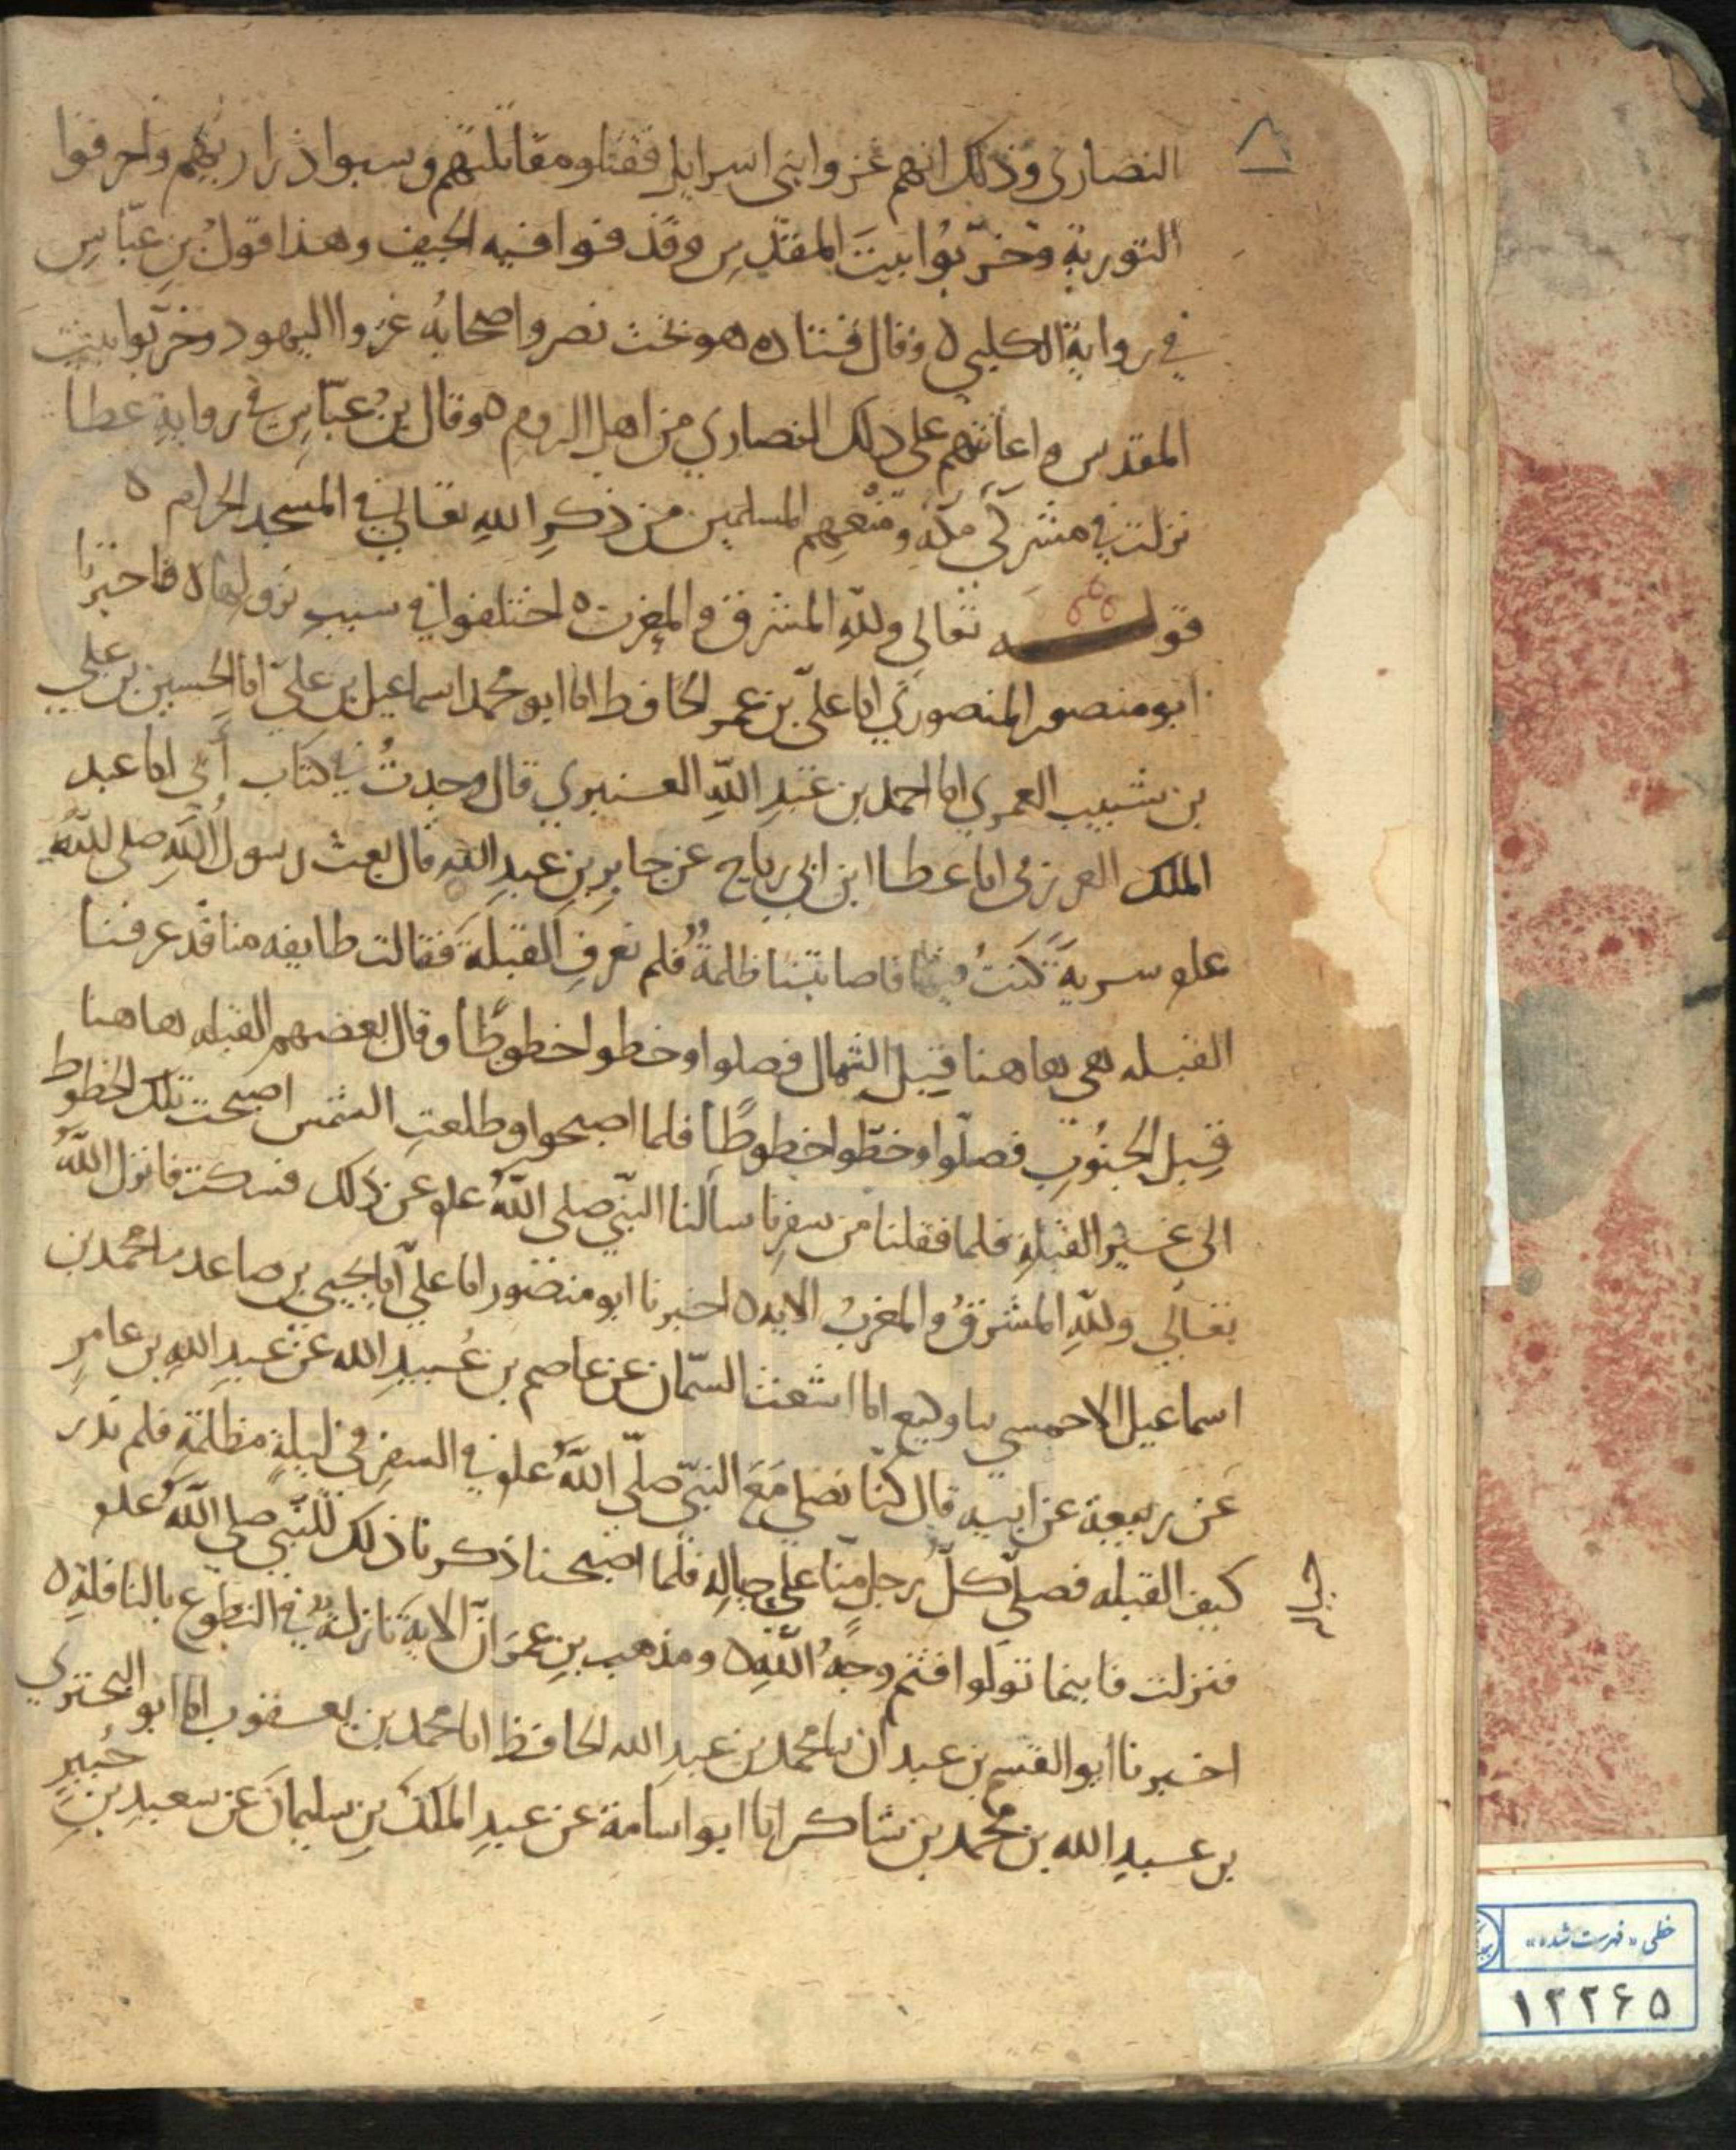 النصارى وذلك انهم غزوا بنى اسرايل فقتلوا مقاتلتهم وسبوا ذراريهم واحرقوا
التورية وخرّبُوا بيتَ المقدسِ وقذفوا فيه الجيف وهذا قولُ بنِ عبّاسٍ
في رواية الكلبي ه وقال قتاده هو بخت نصر واصحابُه غزوا اليهود وخرّبوا بيت
المقدس واعانتهم على ذلك النصاري من اهل الروم ه وقال بنُ عبّاسٍ في روايةِ عطا
نزلت في مشركي مكة ومنعهم المسلمين من ذكرِ اللهِ تعالى في المسجد الحرام ه
قولــه تعالى وللهِ المشرق والمغرب ه اختلفوا في سببِ نزولها ه فاخبرنا
ابو منصور المنصوري انا علي بن عمر الحافظ انا ابو محمد اسماعيل بن علي انا الحسين بن علي
بن شبيب العمري انا احمد بن عبد اللهِ العنبري قال وجدتُ في كتاب أبي انا عبد
الملك العرزمي انا عطا ابن ابي رباح عن جابرِ بنِ عبدِ اللهِ قال بعث رسولُ اللهِ صلى اللهُ
علو سريةً كنتُ فيها فاصابتنا ظلمةٌ فلم نعرفِ القبلةَ فقالت طايفه منا قد عرفنا
القبله هى هاهنا قِبل الشمال فصلوا وخطوا خطوطًا وقال بعضهم القبله هاهنا
قِبل الجنُوبِ فصلّوا وخطّوا خطوطًا فلما اصبحوا وطلعتِ الشمس اصبحت تلك الخطوط
الى غير القبلةِ فلما قفلنا من سفرِنا سالنا النبّي صلى اللهُ علو عن ذلك فسكت فانزل اللهُ
تعالي وللهِ المشرقُ والمغربُ الايه ه اخبرنا ابو منصور انا عليّ انا يحيي بن صاعد نا محمد بن
اسماعيل الاحمسي نا وكيع انا اشعث السمّان عن عاصم بن عُبيدِ الله عن عبدِ اللهِ بن عامرِ
عن ربيعة عن ابيه قال كنّا نصلي مَعَ النبّي صلّى اللهُ علو في السفر في ليلةٍ مظلمةٍ فلم ندر
كيف القبله فصلّى كلّ رجل منّا على حياله فلما اصبحنا ذكرنا ذلك للنّبي صلى اللهُ علو
فنزلت فاينما تولّوا فثم وجهُ اللهِ ه ومذهب بنِ عمَر انّ الاية نازلةٌ في التطوع بالنافلةِ ه
اخبرنا ابو القسم بن عبدان نا محمد بن عبدِ الله الحافظ انا محمد بن يعقوب انا ابو البختري
بن عبدِ الله بن محمد بن شاكر انا ابو اسامة عن عبدِ الملك بنِ سليمان عن سعيدِ بنِ جُبيرٍ
خطی «فهرست شده»
۱۲۲۶۵